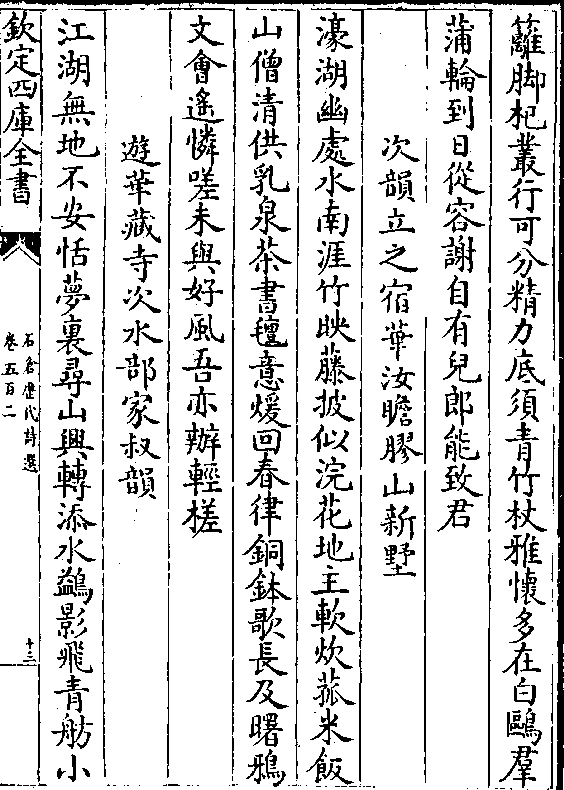 籬脚杞叢行可分精力底須青竹杖雅懷多在白鷗羣
蒲輪到日從容謝自有兒郎能致君
次韻立之宿華汝瞻膠山新墅
濠湖幽處水南涯竹映藤披似浣花地主軟炊菰米飯
山僧清供乳泉茶書氊意煖回春律銅鉢歌長及曙鴉
文會遙憐嗟未與好風吾亦辦輕槎
遊華藏寺次水部家叔韻
江湖無地不安恬夢裏尋山興轉添水鷁影飛青舫小
欽定四庫全書
石倉歷代詩選
卷五百二
十三